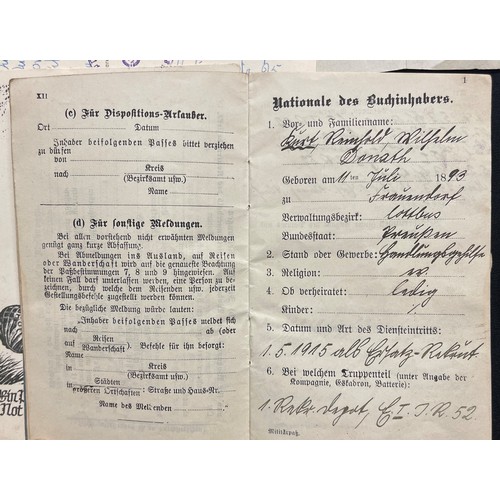 XII
(c) Für Dispositions-Urlauber.
Ort Datum
Inhaber beifolgenden Passes bittet verziehen
zu dürfen
von
nach Kreis
(Bezirksamt usw.)
Name
(d) Für sonstige Meldungen.
Bei allen vorstehend nicht erwähnten Meldungen
genügt ganz kurze Abfassung.
Bei Abmeldungen ins Ausland, auf Reisen
oder Wanderschaft wird auf die genaueste Beachtung
der Paßbestimmungen 7, 8 und 9 hingewiesen. Auf
keinen Fall darf unterlassen werden, eine Person zu be-
zeichnen, durch welche dem Reisenden usw. jederzeit
Gestellungsbefehle zugestellt werden können.
Die bezügliche Meldung würde lauten:
"Inhaber beifolgenden Passes meldet sich
nach ab (oder
auf Reisen
Wanderschaft). Befehle für ihn besorgt:
Name
in Kreis
(Bezirksamt usw.)
In Städten
größeren Ortschaften: Straße und Haus-Nr.
Name des Meldenden
1
Nationale des Buchinhabers.
1. Vor- und Familienname:
Kurt, Reinhold, Wilhelm
Donath
Geboren am 11ten Juli 1893
zu Frauendorf
Verwaltungsbezirk: Cottbus
Bundesstaat: Preußen
2. Stand oder Gewerbe: Handlungsgehilfe
3. Religion: ev.
4. Ob verheiratet: ledig
Kinder:
5. Datum und Art des Diensteintritts:
1.5.1915 als Ersatz-Rekrut
6. Bei welchem Truppenteil (unter Angabe der
Kompagnie, Eskadron, Batterie):
1. Rekr. Depot, E. I. J. R. 52
Militärpaß.